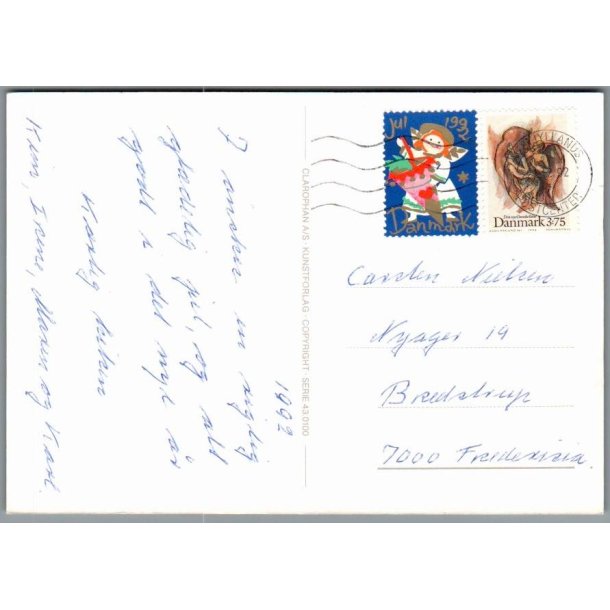 1992
I ønskes en rigtig
glædelig jul, og alt
godt i det nye år
Kærlig hilsen
Kim, Irene, og Karl.
CLAROPHAN A/S · KUNSTFORLAG · COPYRIGHT SERIE 43.0100
Jul 1992
Danmark
Danmark 3.75
Carsten Nielsen
Nyager 19
Bredstrup
7000 Fredericia